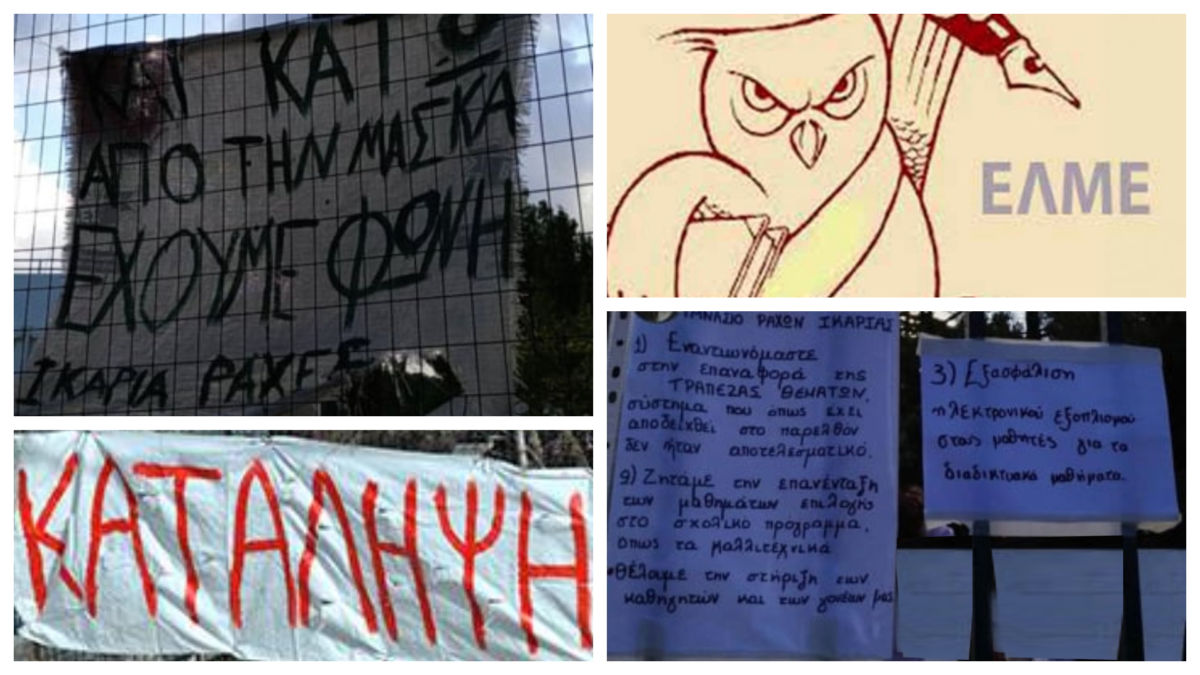 ΚΑΙ ΚΑΤΩ
ΑΠΟ ΤΗΝ ΜΑΣΚΑ
ΕΧΟΥΜΕ ΦΩΝΗ
ΙΚΑΡΙΑ ΡΑΧΕΣ
ΕΛΜΕ
ΚΑΤΑΛΗΨΗ
ΡΑΧΩΝ ΙΚΑΡΙΑΣ
1) Εναντιωνόμαστε
στην επαναφορά της
ΤΡΑΠΕΖΑΣ ΘΕΜΑΤΩΝ,
σύστημα που όπως έχει
αποδειχθεί στο παρελθόν
δεν ήταν αποτελεσματικό.
9) Ζητάμε την επανένταξη
των μαθημάτων επιλογής
στο σχολικό πρόγραμμα,
όπως τα καλλιτεχνικά
•Θέλαμε την στήριξη των
καθηγητών και των γονέων μας
3) Εξασφάλιση
ηλεκτρονικού εξοπλισμού
στους μαθητές για τα
διαδικτυακά μαθήματα.